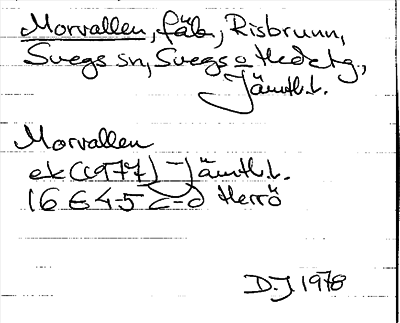 Morvallen, fäb., Risbrunn,
Svegs sn, Svegs o Hedetg.,
Jämtl.l.
Morvallen
ek (1977) Jämtl.l.
16 E 4-5 c-d Herrö
D.J. 1978